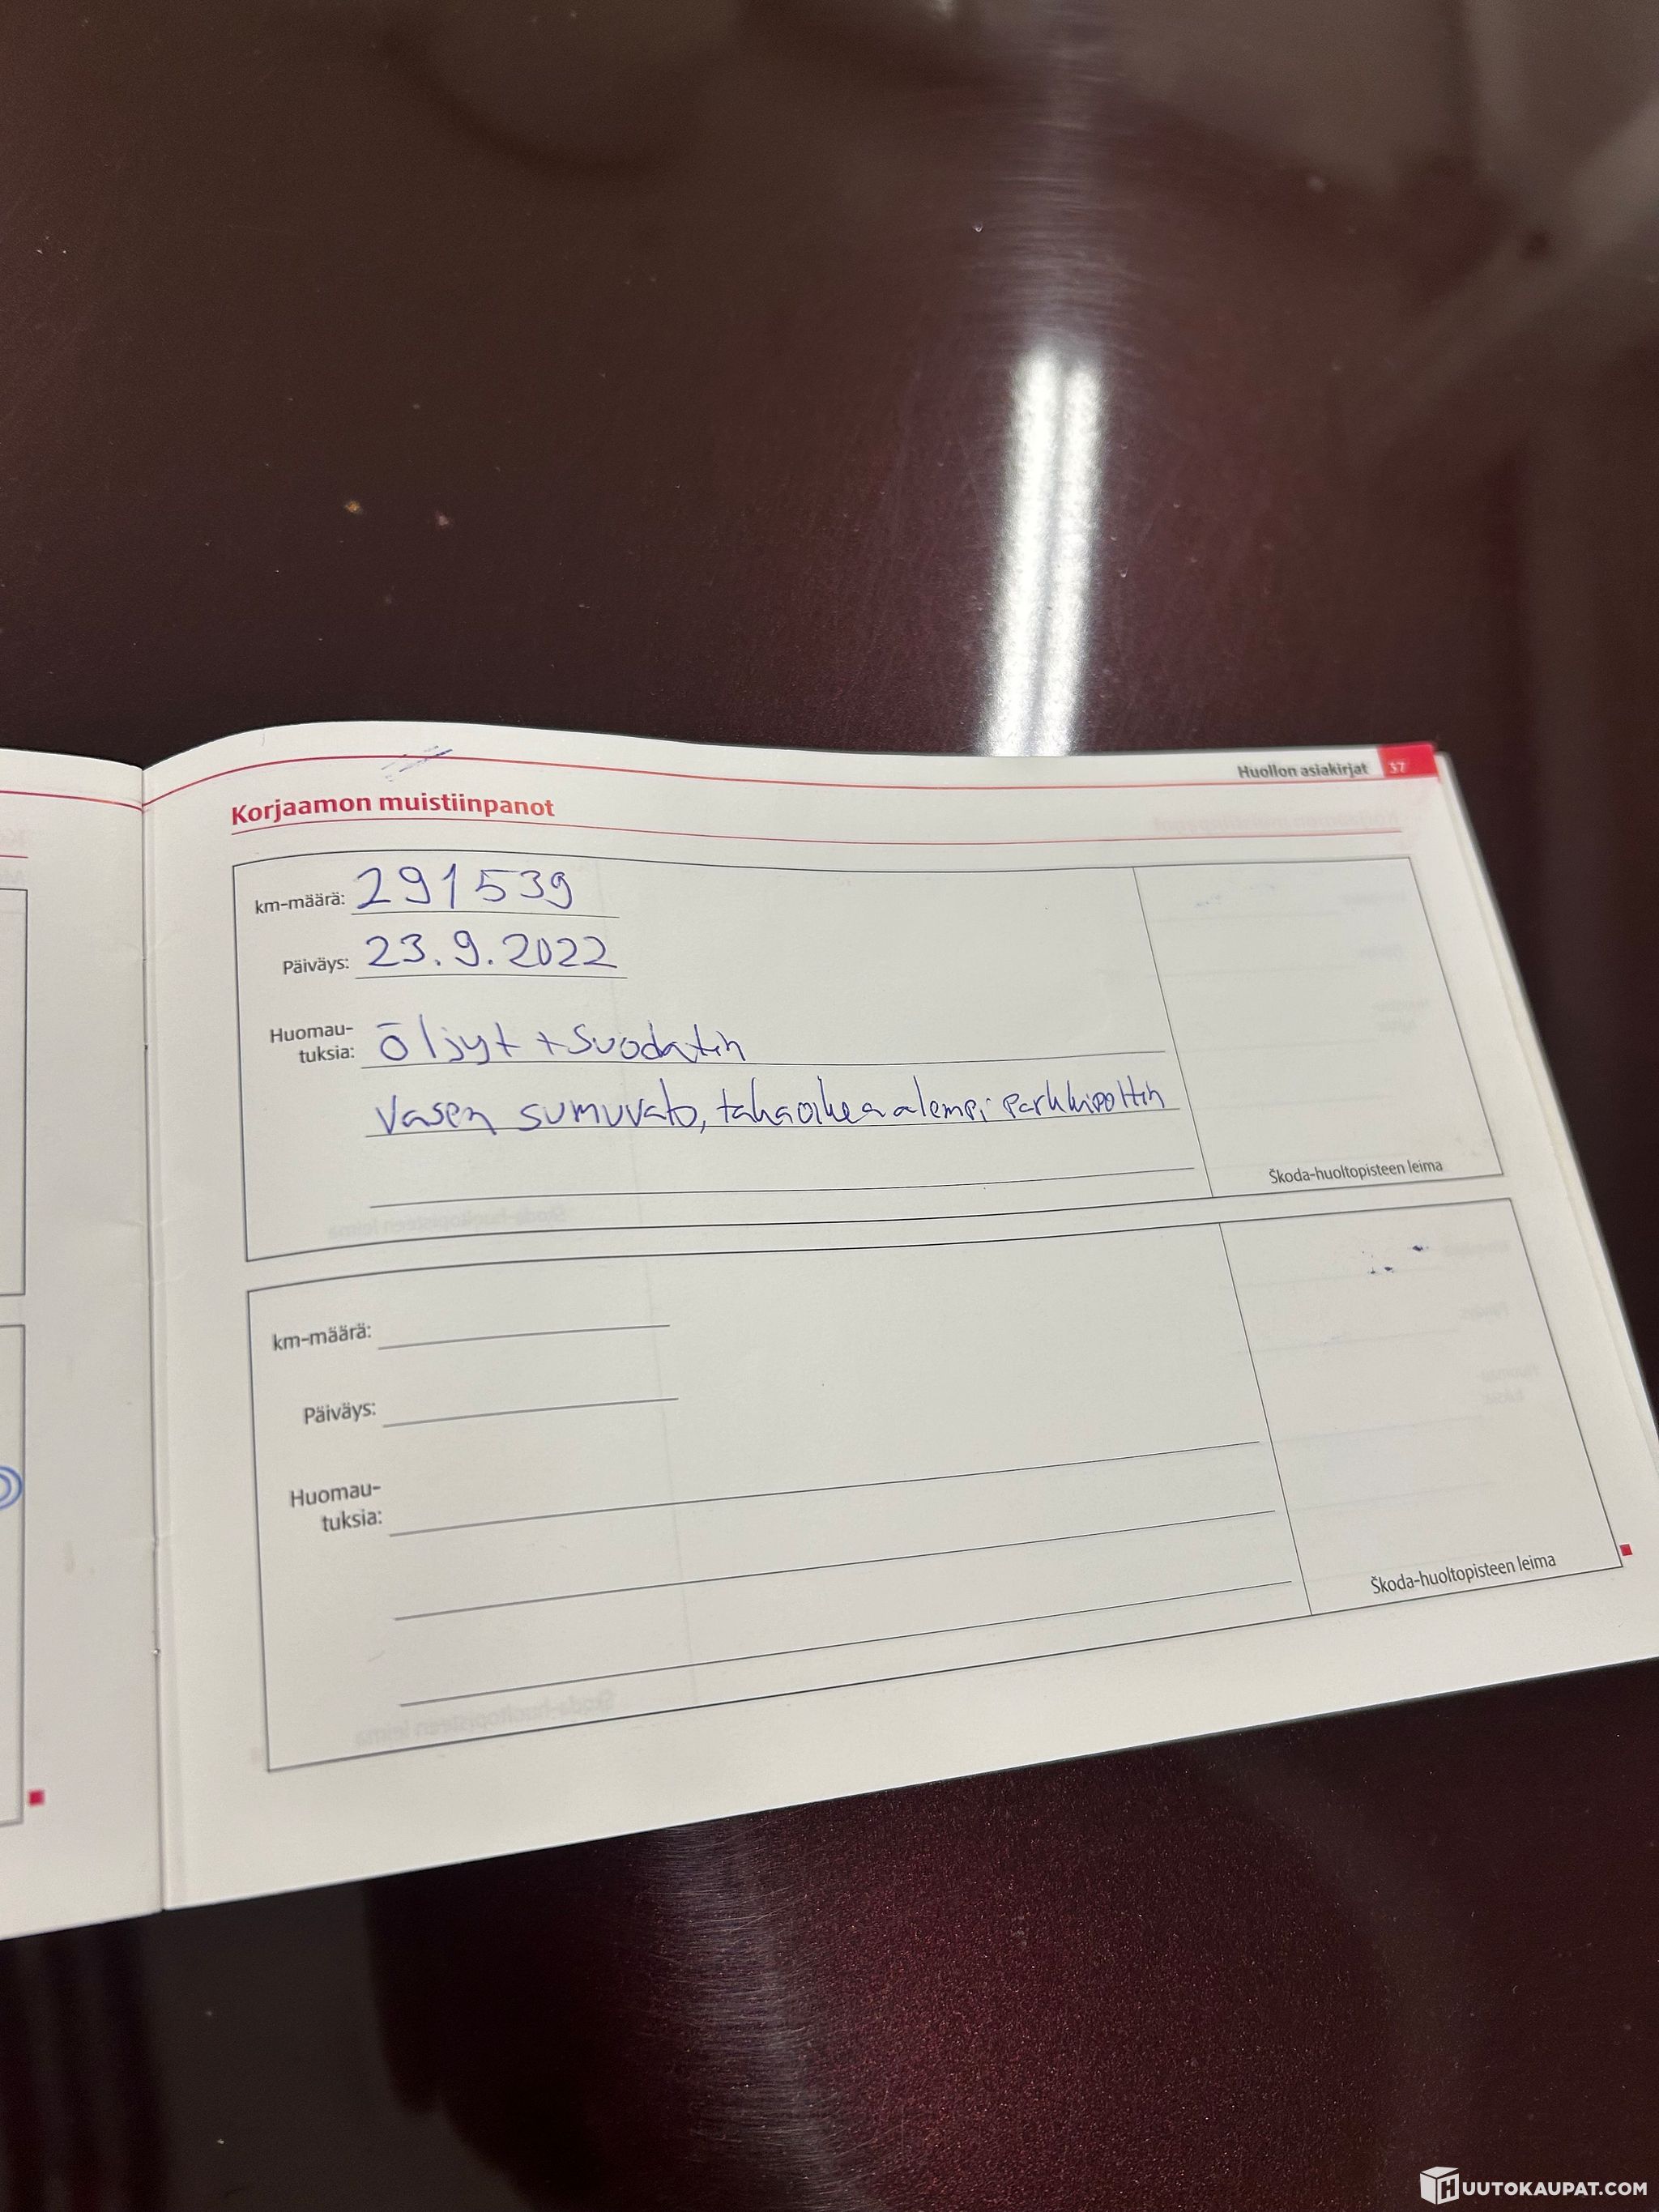 Huollon asiakirjat 37
Korjaamon muistiinpanot
km-määrä: 291539
Päiväys: 23.9.2022
Huomau-
tuksia: öljyt + suodatin
Vasen sumuvalo, takaoikea alempi parkkipolttin
Škoda-huoltopisteen leima
km-määrä:
Päiväys:
Huomau-
tuksia:
Škoda-huoltopisteen leima
HUUTOKAUPAT.COM